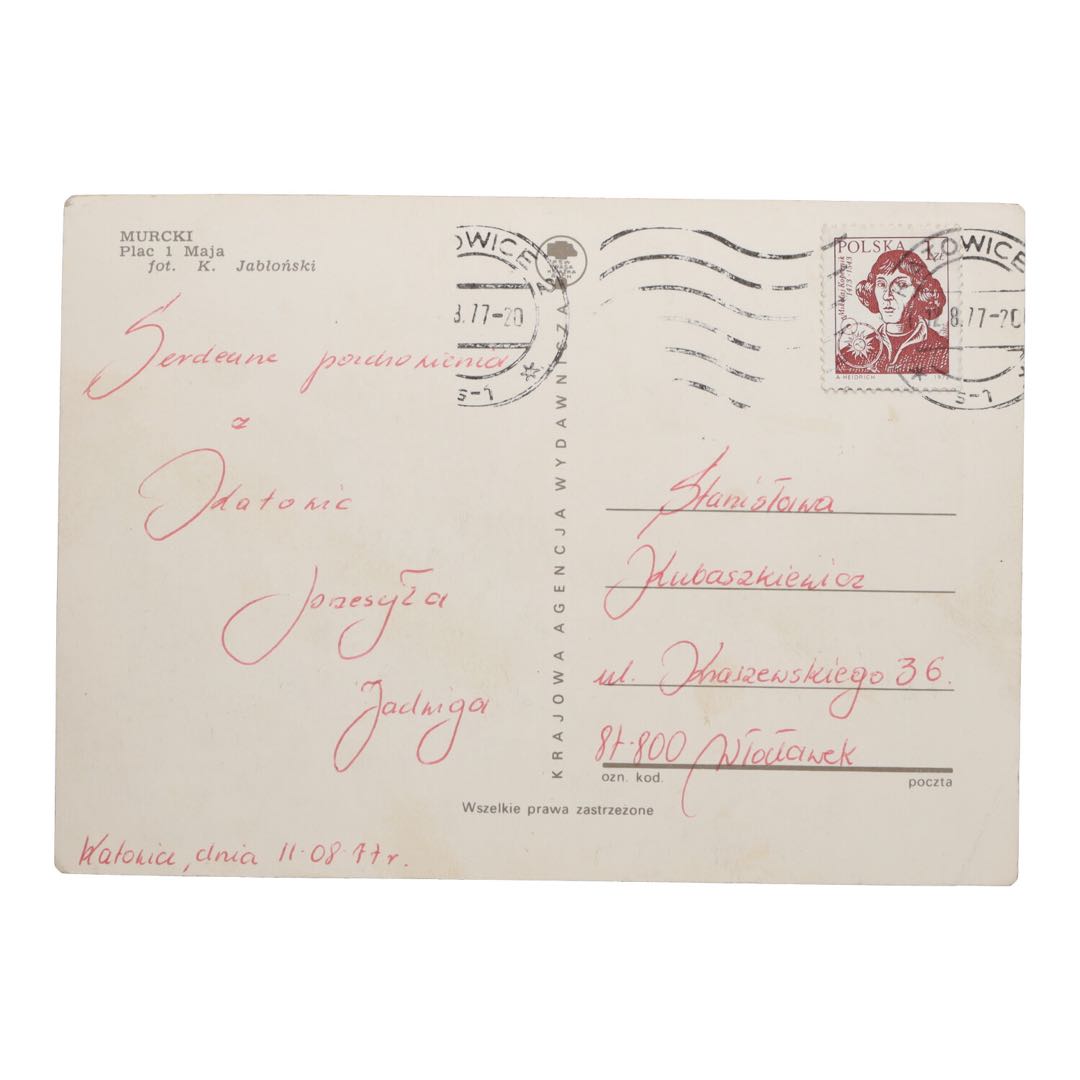 MURCKI
Plac 1 Maja
fot. K. Jabłoński
Serdeczne pozdrowienia
z
Katowic
przesyła
Jadwiga
Katowice, dnia 11.08.77 r.
KRAJOWA AGENCJA WYDAWNICZA
OWICE
8.77-20
s-1
POLSKA 1 zł
Mikołaj Kopernik
1473-1543
A. HEIDRICH
OWICE
8.77-20
s-1
Stanisława
Kubaszkiewicz
ul. Kraszewskiego 36.
87-800 Włocławek
ozn. kod. poczta
Wszelkie prawa zastrzeżone